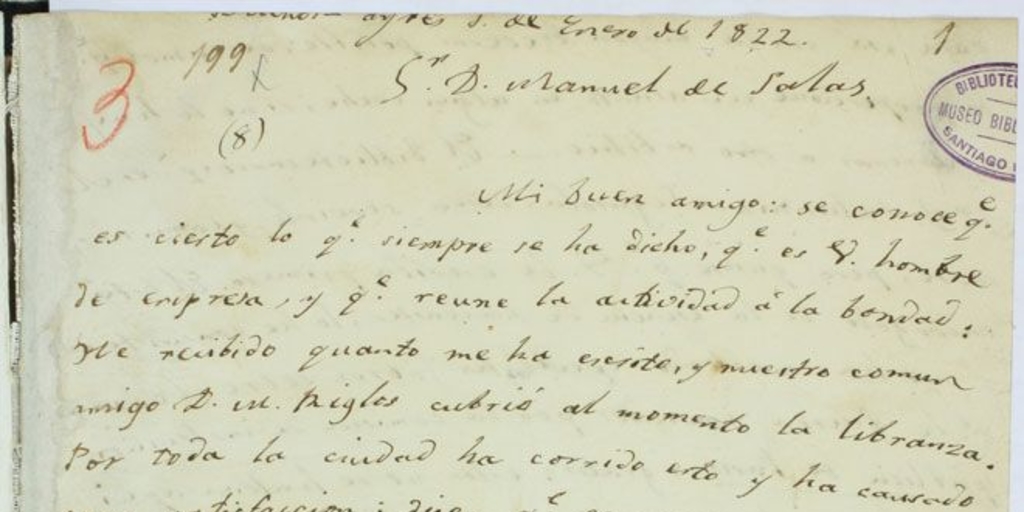 ayres 5. de Enero de 1822.
1
199
3
Sr. D. Manuel de Salas.
(8)
BIBLIOTE
MUSEO BIBL
SANTIAGO
Mi buen amigo: se conoce qe.
es cierto lo qe. siempre se ha dicho, qe. es V. hombre
de empresa, y qe. reune la actividad á la bondad.
He recibido quanto me ha escrito, y nuestro comun
amigo D. M. Riglos cubrió al momento la libranza.
Por toda la ciudad ha corrido esto y ha causado